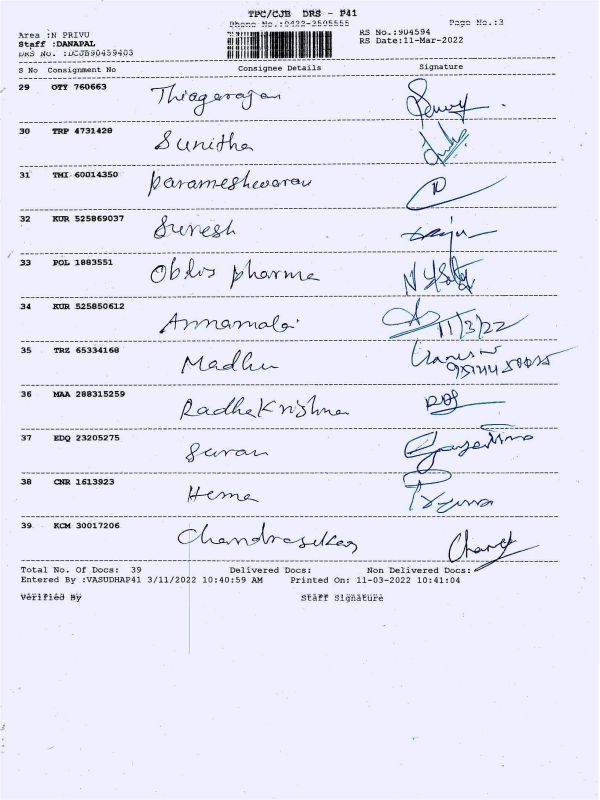 TPC/CJB DRS - P41
Phone No.:0422-3505555 Page No.:3
Area :N PRIVU RS No.:904594
Staff :DANAPAL RS Date:11-Mar-2022
DRS No. :DCJB90459403
S No Consignment No Consignee Details Signature
29 OTY 760663 Thiagarajan
30 TRP 4731428 Sunitha
31 TMI 60014350 Parameshwaran
32 KUR 525869037 Suresh
33 POL 1883551 pharma
34 KUR 525850612 Annamalai 11/3/22
35 TRZ 65334168 Madhu
36 MAA 288315259 RadhaKrishna
37 EDQ 23205275
38 CNR 1613923 Hema
39 KCM 30017206 Chandrasekar
Total No. Of Docs: 39 Delivered Docs: Non Delivered Docs:
Entered By :VASUDHAP41 3/11/2022 10:40:59 AM Printed On: 11-03-2022 10:41:04
Verified By Staff Signature